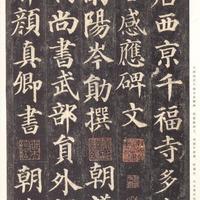 唐西京千福寺多
感應碑文
南陽岑勛撰 朝
尚書武部員外
顏真卿書 朝